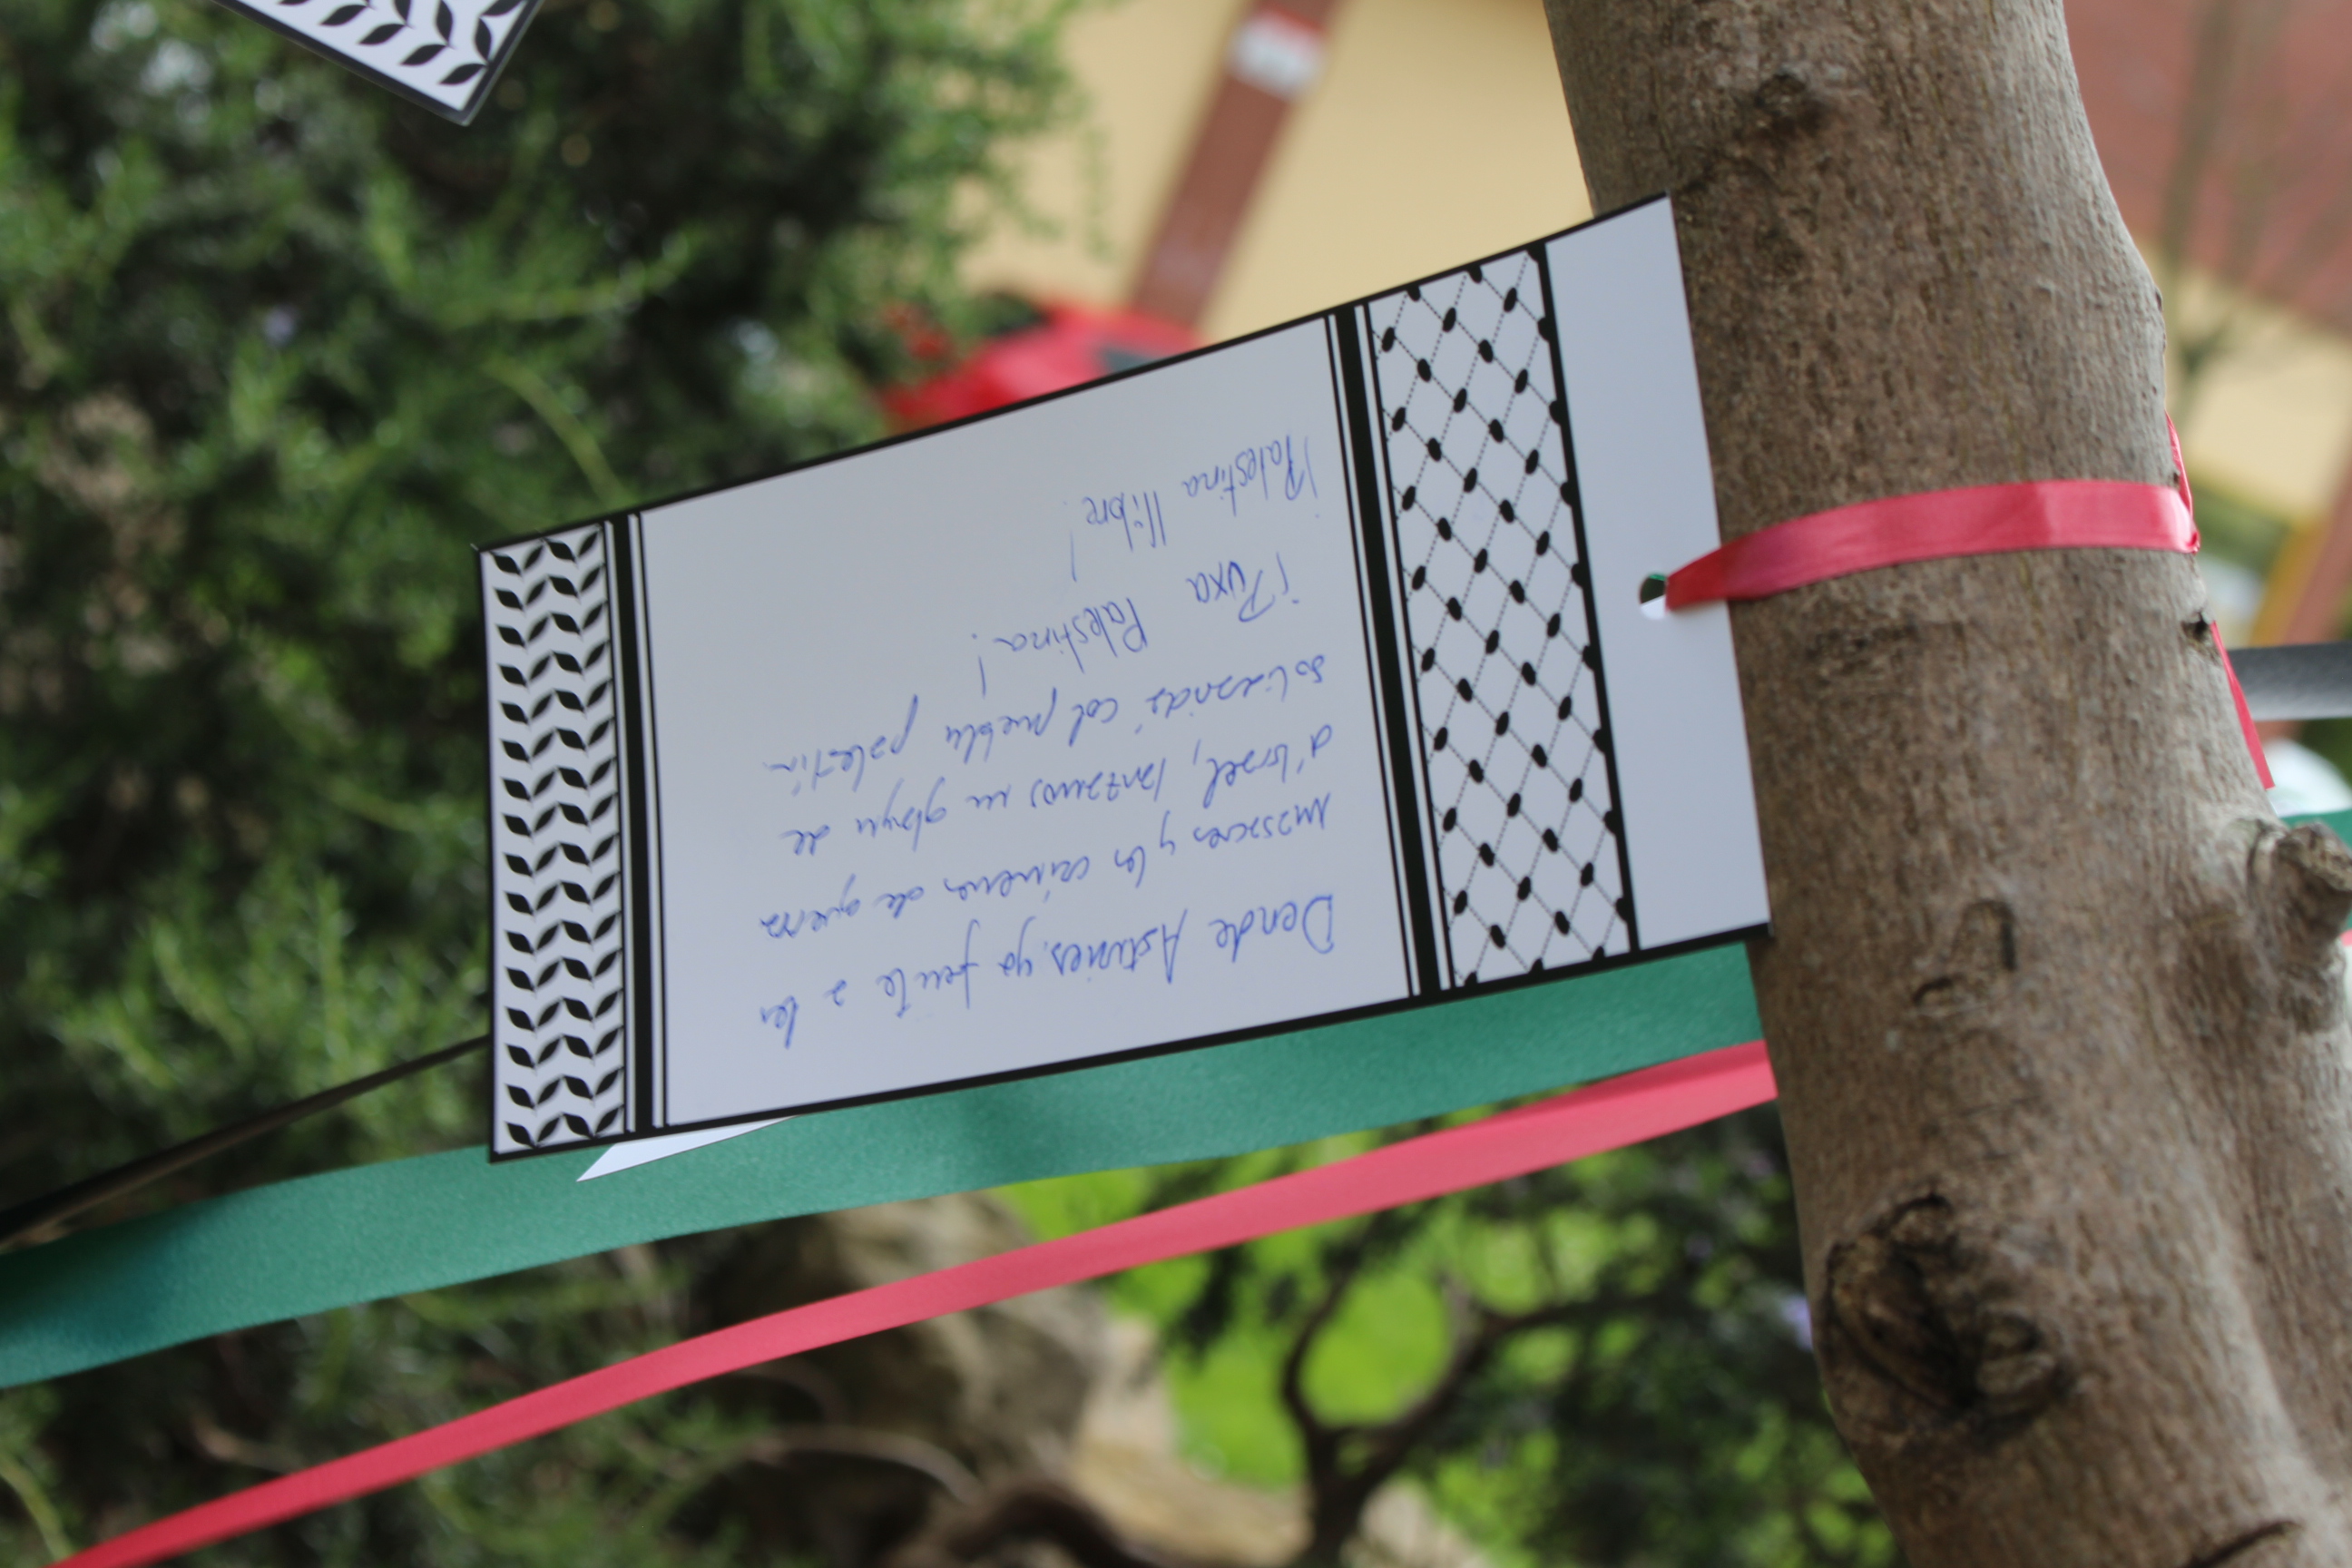 Dende Asturies, ya frente a les
massacres y los crímenes de guerra
d'Israel, lanzamos un glayíu de
solidaridá col pueblu palestín.
¡Puxa Palestina!
¡Palestina llibre!